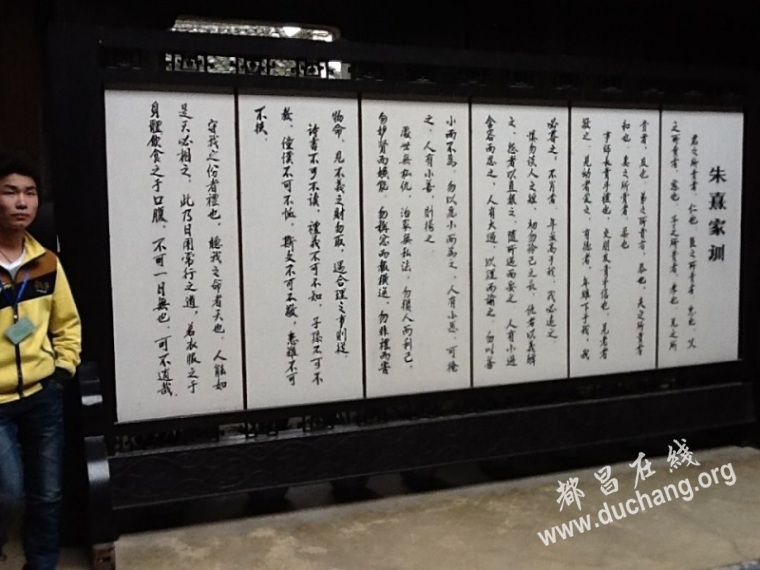 朱熹家训
君之所貴者，仁也。臣之所貴者，忠也。父
之所貴者，慈也。子之所貴者，孝也。兄之所
貴者，友也。弟之所貴者，恭也。夫之所貴者
和也。妻之所貴者，柔也
事師長貴乎禮也，交朋友貴乎信也。見老者
敬之，見幼者愛之。有德者，年雖下于我，我
必尊之，不肖者，年雖高于我，我必遠之
慎勿談人之短，切勿矜己之長。仇者以義解
之，怨者以直報之，隨所遇而安之 人有小過
含容而忍之，人有大過，以理而諭之 勿以善
小而不為，勿以惡小而為之。人有小惡，可掩
之，人有小善，則揚之。
處世無私仇，治家無私法。勿損人而利己，
勿妒賢而嫉能。勿稱忿而報橫逆，勿非禮而害
物命。見不義之財勿取，遇合理之事則從。
詩書不可不讀，禮義不可不知。子孫不可不
教，僮僕不可不恤。斯文不可不敬，患難不可
不扶。
守我之份者禮也，聽我之命者天也。人能如
是天必相之。此乃日用常行之道，若衣服之于
身體，飲食之于口腹，不可一日無也，可不謹哉。
都昌在线
www.duchang.org